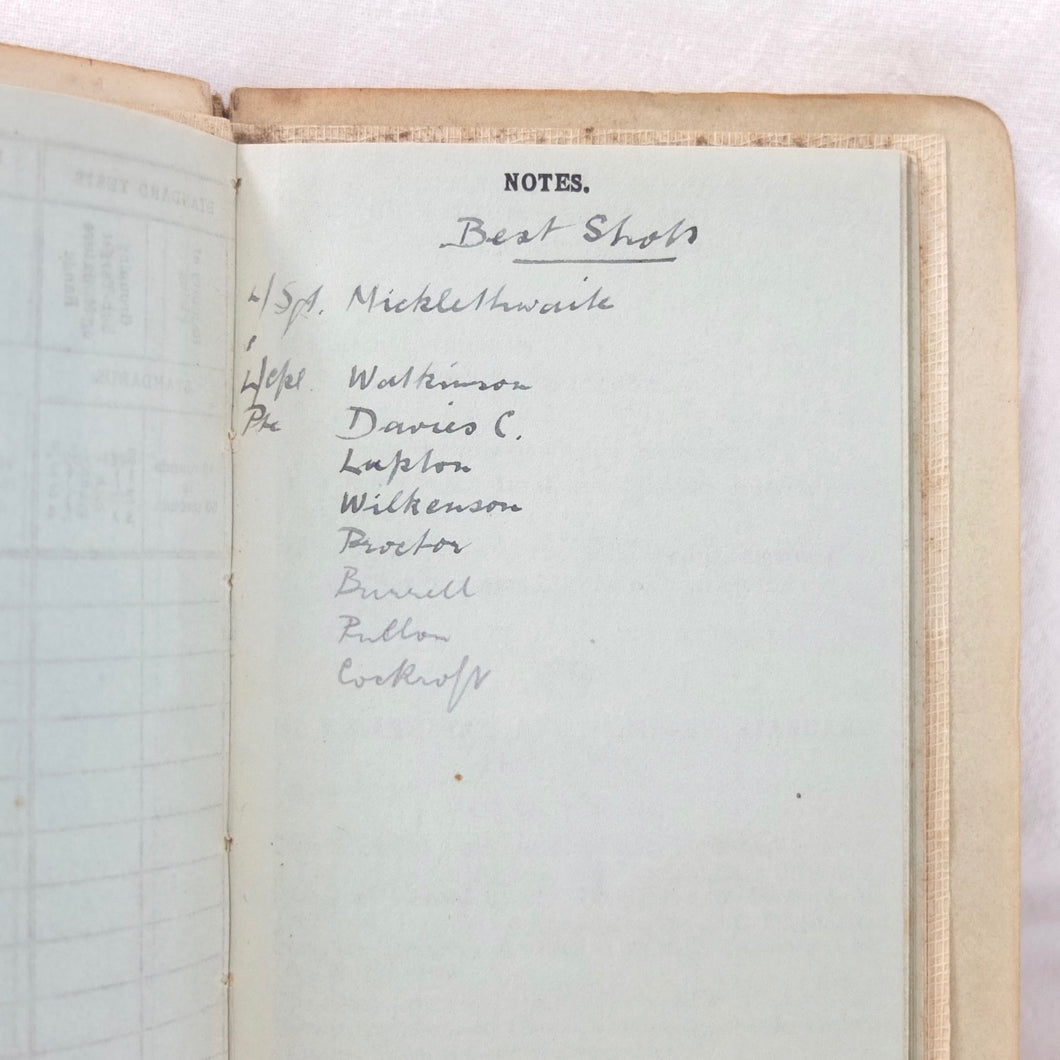 NOTES.
Best Shots
L/Sgt. Micklethwaite
L/cpl. Watkinson
Pte Davies C.
Lupton
Wilkenson
Proctor
Burrell
Pullon
Cockroft
STANDARD TESTS
STANDARDS.